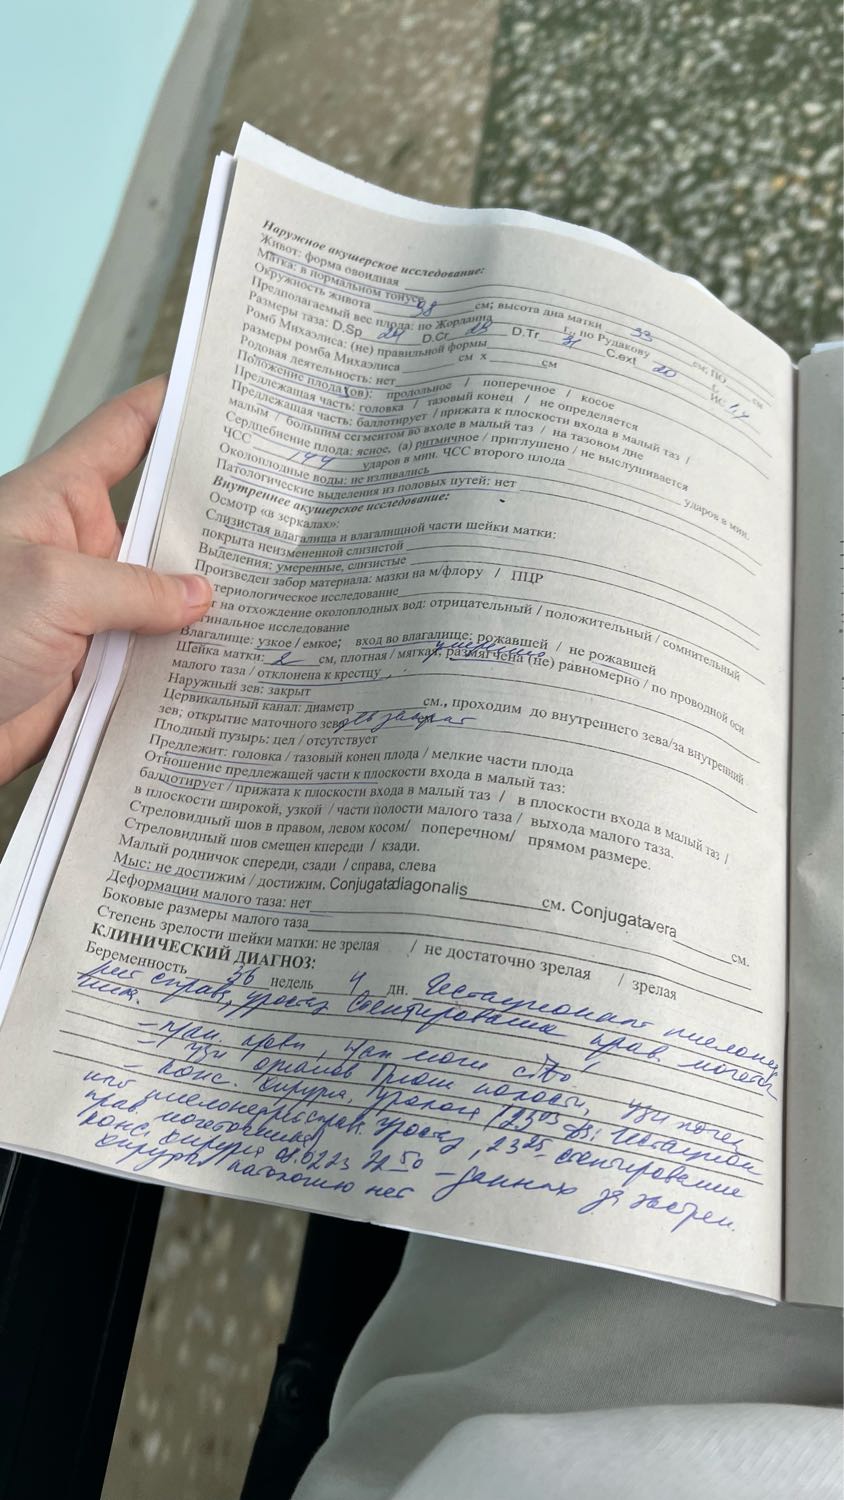 Наружное акушерское исследование:
Живот: форма овоидная
Матка: в нормальном тонусе
Окружность живота 98 см; высота дна матки 33 см; ПО см
Предполагаемый вес плода: по Жорданиа г., по Рудакову г.
Размеры таза: D.Sp D.Cr D.Tr 31 C.ext 20 ИС 1,4
Ромб Михаэлиса: (не) правильной формы
размеры ромба Михаэлиса см х см
Родовая деятельность: нет
Положение плода (ов): продольное / поперечное / косое
Предлежащая часть: головка / тазовый конец / не определяется
Предлежащая часть: баллотирует / прижата к плоскости входа в малый таз /
малым / большим сегментом во входе в малый таз / на тазовом дне
Сердцебиение плода: ясное, (а) ритмичное / приглушено / не выслушивается
ЧСС 144 ударов в мин. ЧСС второго плода ударов в мин.
Околоплодные воды: не изливались
Патологические выделения из половых путей: нет
Внутреннее акушерское исследование:
Осмотр «в зеркалах»:
Слизистая влагалища и влагалищной части шейки матки:
покрыта неизмененной слизистой
Выделения: умеренные, слизистые
Произведен забор материала: мазки на м/флору / ПЦР
териологическое исследование
т на отхождение околоплодных вод: отрицательный / положительный / сомнительный
гинальное исследование
Влагалище: узкое / емкое; вход во влагалище: рожавшей / не рожавшей
Шейка матки: 2 см, плотная / мягкая, умеренно размягчена (не) равномерно / по проводной оси
малого таза / отклонена к крестцу
Наружный зев: закрыт
Цервикальный канал: диаметр см., проходим до внутреннего зева/за внутренний
зев; открытие маточного зева закрыт
Плодный пузырь: цел / отсутствует
Предлежит: головка / тазовый конец плода / мелкие части плода
Отношение предлежащей части к плоскости входа в малый таз:
баллотирует / прижата к плоскости входа в малый таз / в плоскости входа в малый таз /
в плоскости широкой, узкой / части полости малого таза / выхода малого таза.
Стреловидный шов в правом, левом косом/ поперечном/ прямом размере.
Стреловидный шов смещен кпереди / кзади.
Малый родничок спереди, сзади / справа, слева
Мыс: не достижим / достижим. Conjugatadiagonalis см. Conjugatavera см.
Деформации малого таза: нет
Боковые размеры малого таза
Степень зрелости шейки матки: не зрелая / не достаточно зрелая / зрелая
КЛИНИЧЕСКИЙ ДИАГНОЗ:
Беременность 36 недель 4 дн. Гестационный пиелонеф
рит справа, уростаз Стентирование прав. мочеточ
ника.
– крови, мочи
– УЗИ органов брюш полости, УЗИ почек
– конс. хирурга, уролога Гестацион
ный пиелонефрит справ. уростаз, стентирование
прав. мочеточника
конс. хирурга 08.02.23 – данных за экстрен.
хирург патологию нет